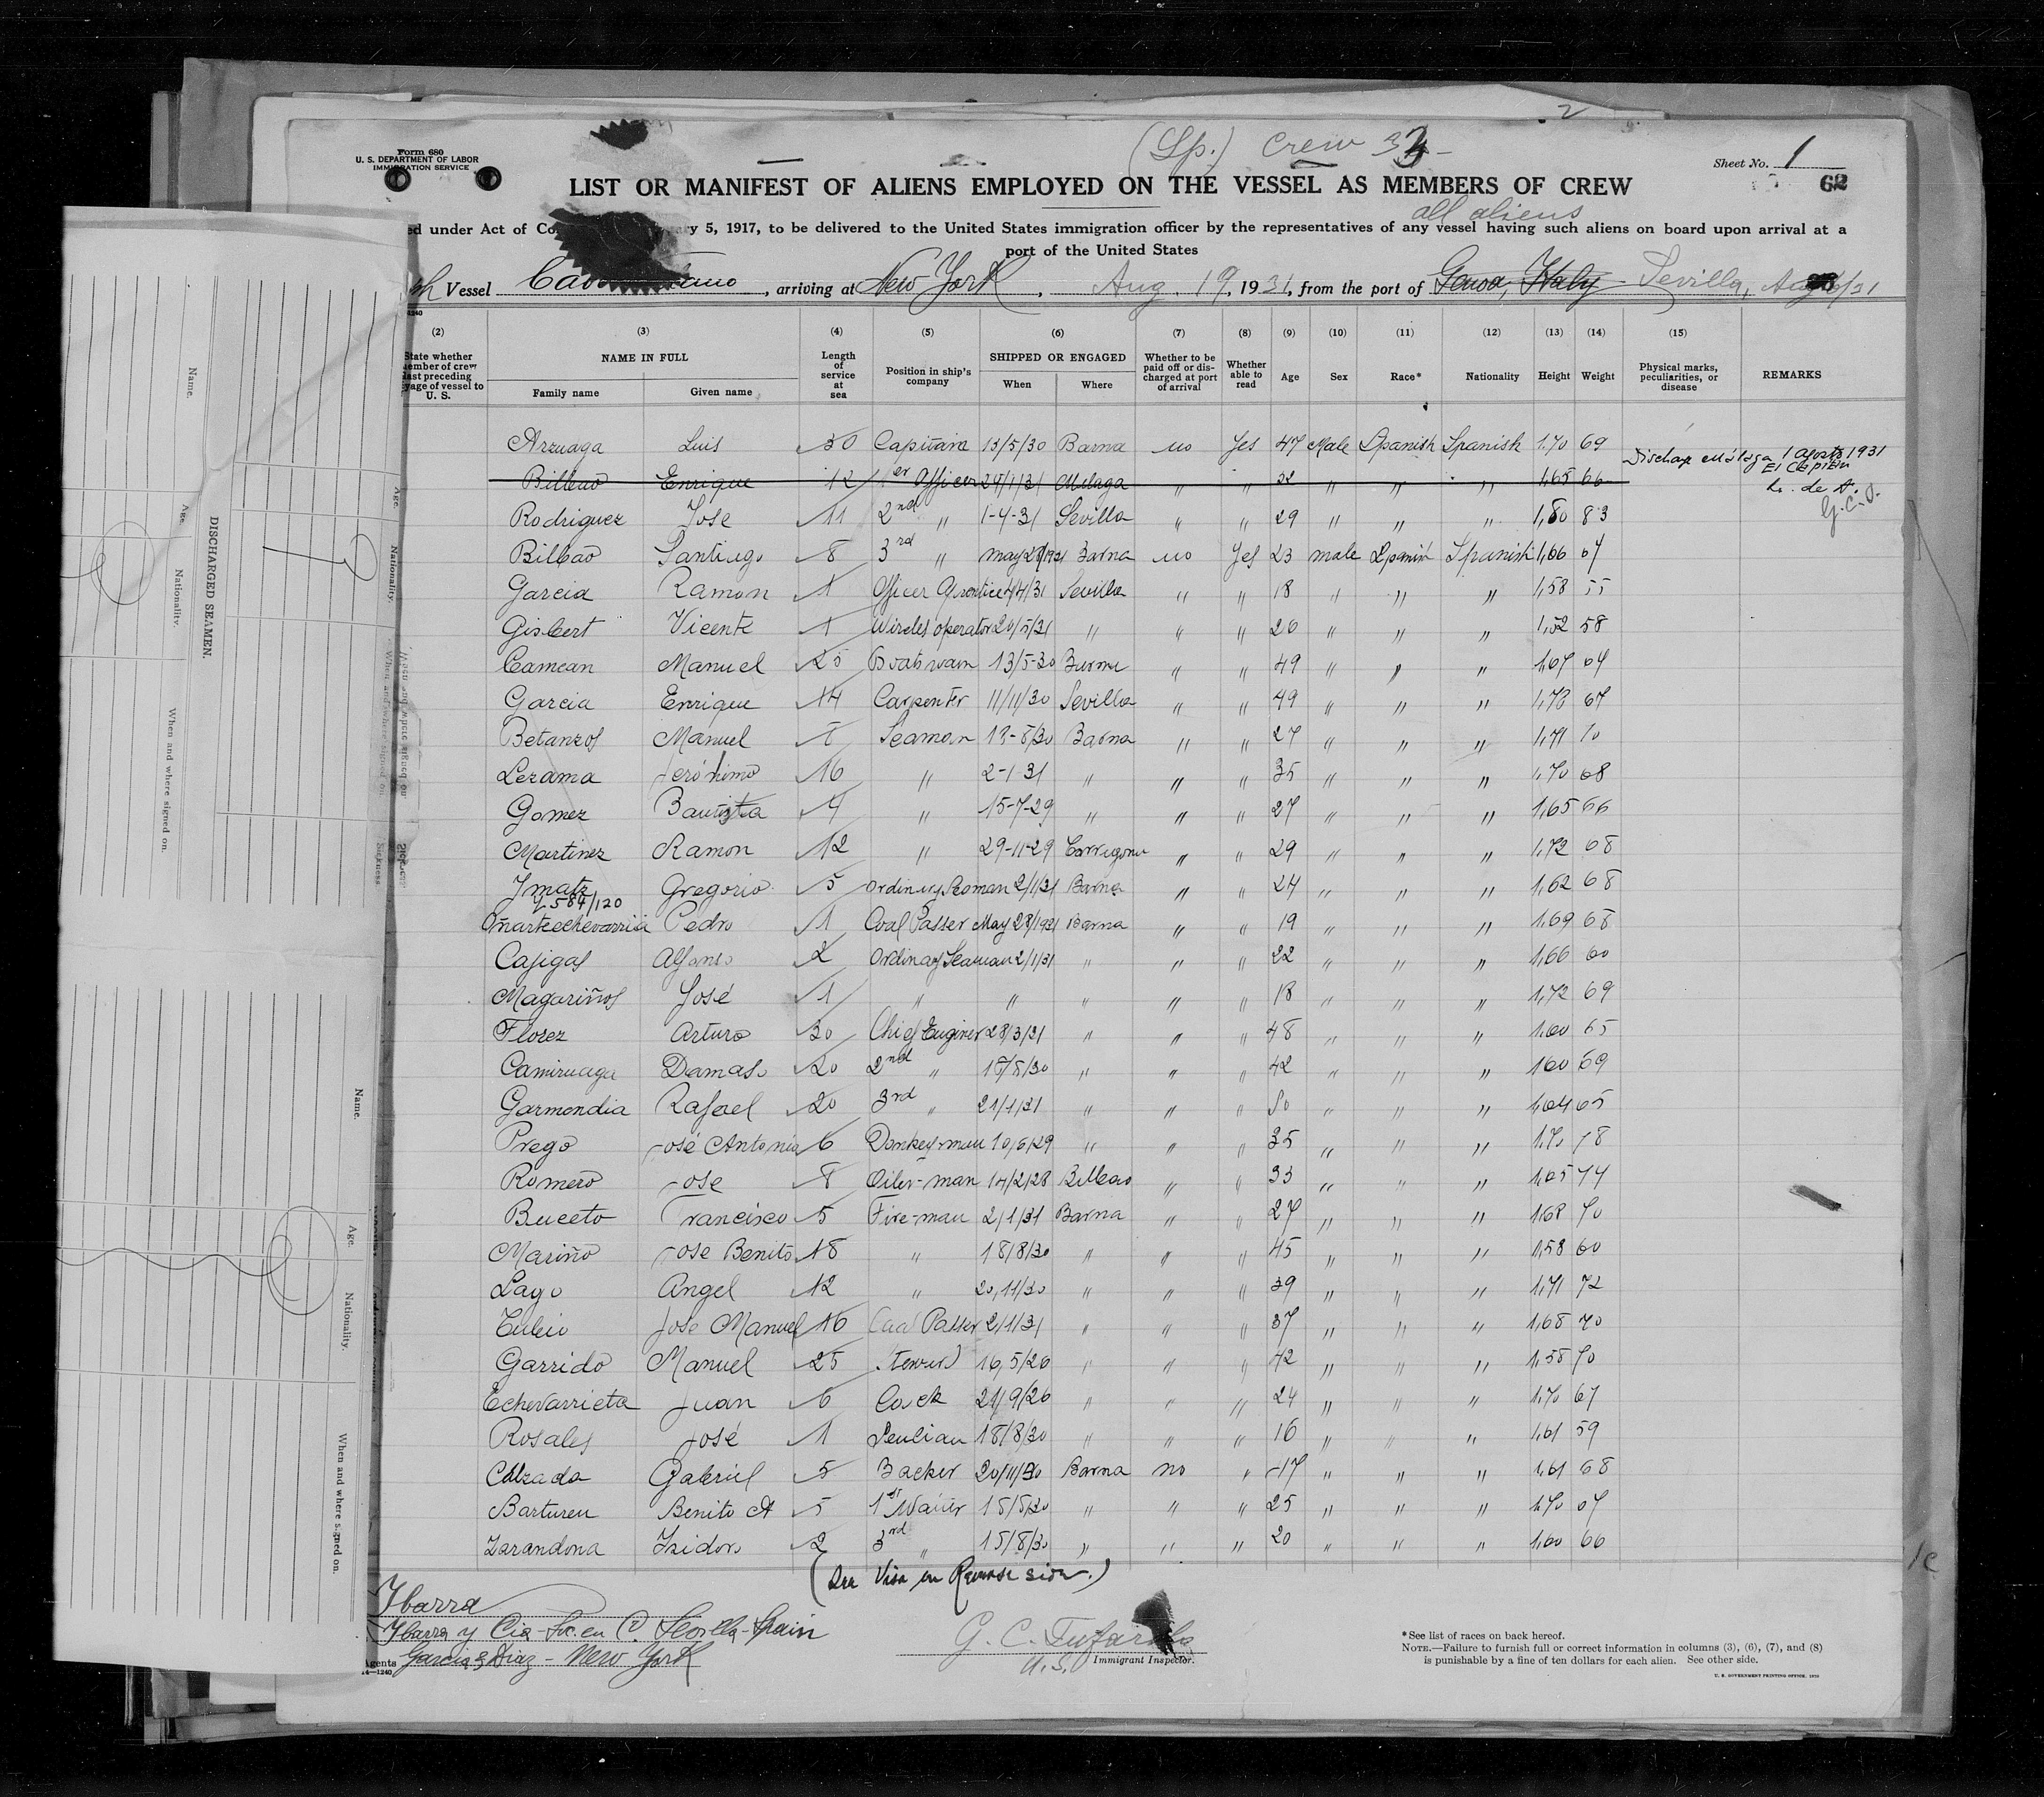 2
(Sp.) Crew 33
Form 680
U. S. DEPARTMENT OF LABOR
IMMIGRATION SERVICE
Sheet No. 1
62
LIST OR MANIFEST OF ALIENS EMPLOYED ON THE VESSEL AS MEMBERS OF CREW
all aliens
ed under Act of Co ry 5, 1917, to be delivered to the United States immigration officer by the representatives of any vessel having such aliens on board upon arrival at a
port of the United States
Vessel Cabo , arriving at New York , Aug. 19, 1931, from the port of Genoa, Italy Sevilla,
(2) (3) (4) (5) (6) (7) (8) (9) (10) (11) (12) (13) (14) (15)
State whether member of crew last preceding voyage of vessel to U. S.
NAME IN FULL Family name Given name
Length of service at sea
Position in ship's company
SHIPPED OR ENGAGED When Where
Whether to be paid off or discharged at port of arrival
Whether able to read
Age Sex Race* Nationality Height Weight
Physical marks, peculiarities, or disease
REMARKS
Arzuaga Luis 30 Capitain 13/5/30 Barna no Yes 47 Male Spanish Spanish 1,70 69
Discharge Málaga 1 Agosto 1931
El Capitán
Bilbao Enrique 12 1er Officer 24/1/31 Malaga " " 32 " " " 1,65 66
G.C.T.
Rodriguez Jose 11 2nd " 1-4-31 Sevilla " " 29 " " " 1,80 83
Bilbao Santiago 8 3rd " May 28/1931 Barna no Yes 23 male Spanish Spanish 1,66 67
Garcia Ramon 1 Officer Aprentice 4/4/31 Sevilla " " 18 " " " 1,58 55
Gisbert Vicente 1 Wireles operator 20/5/31 " " " 26 " " " 1,52 58
Camean Manuel 25 Boatswain 13/5-30 Barna " " 49 " " " 1,67 64
Garcia Enrique 14 Carpenter 11/11/30 Sevilla " " 49 " " " 1,73 67
Betanzos Manuel Seaman 13-8/30 Barna " " 27 " " " 1,71 70
Lezama Jerónimo 16 " 2-1-31 " " " 35 " " " 1,70 68
Gomez Bautista 4 " 15-7-29 " " " 27 " " " 1,65 66
Martinez Ramon 12 " 29-11-29 Tarragona " " 29 " " " 1,72 68
Ymatz Gregorio 5 Ordinary Seaman 2/1/31 Barna " " 24 " " " 1,62 68
584/120
Oñartechevarria Pedro 1 Coal Passer May 28/1931 Barna " " 19 " " " 1,69 65
Cajigas Alfonso 2 Ordinary Seaman 2/1/31 " " " 22 " " " 1,66 60
Magariños José 1 " " " " " 18 " " " 1,72 69
Florez Arturo 30 Chief Enginer 28/3/31 " " " 48 " " " 1,60 65
Camiruaga Damaso 20 2nd " 15/5/30 " " " 42 " " " 1,60 69
Garmendia Rafael 20 3rd " 21/1/31 " " " 50 " " " 1,64 65
Prego José Antonio 6 Donkey-man 10/6/29 " " " 35 " " " 1,70 78
Romero Jose 8 Oiler-man 14/2/28 Bilbao " " 33 " " " 1,65 74
Buceto Francisco 5 Fire-man 2/1/31 Barna " " 27 " " " 1,68 70
Mariño Jose Benito 18 " 18/8/30 " " " 45 " " " 1,58 60
Lago Angel 12 " 20/11/30 " " " 39 " " " 1,71 72
Jose Manuel 16 Coal Passer 2/1/31 " " " 37 " " " 1,68 70
Garrido Manuel 25 Steward 16/5/26 " " " 42 " " " 1,58 70
Echevarrieta Juan 6 Cock 21/9/26 " " " 24 " " " 1,70 67
Rosales José 1 18/8/30 " " " 16 " " " 1,61 59
Calzada Gabriel 5 Backer 20/11/30 Barna no " 17 " " " 1,61 68
Barturen Benito A 5 1st Waiter 15/5/30 " " " 25 " " " 1,70 67
Zarandona Isidoro 2 3rd " 15/8/30 " " " 20 " " " 1,60 66
(See Visa on Reverse side.)
Ybarra
Ybarra y Cia S. en C. Sevilla-Spain
Agents Garcia & Diaz - New York
14-1240
G. C. Tufarolo
U.S. Immigrant Inspector.
*See list of races on back hereof.
NOTE.—Failure to furnish full or correct information in columns (3), (6), (7), and (8)
is punishable by a fine of ten dollars for each alien. See other side.
U. S. GOVERNMENT PRINTING OFFICE: 1930
DISCHARGED SEAMEN.
Name. Age. Nationality. When and where signed on.
Name. Age. Nationality. When and where signed on.